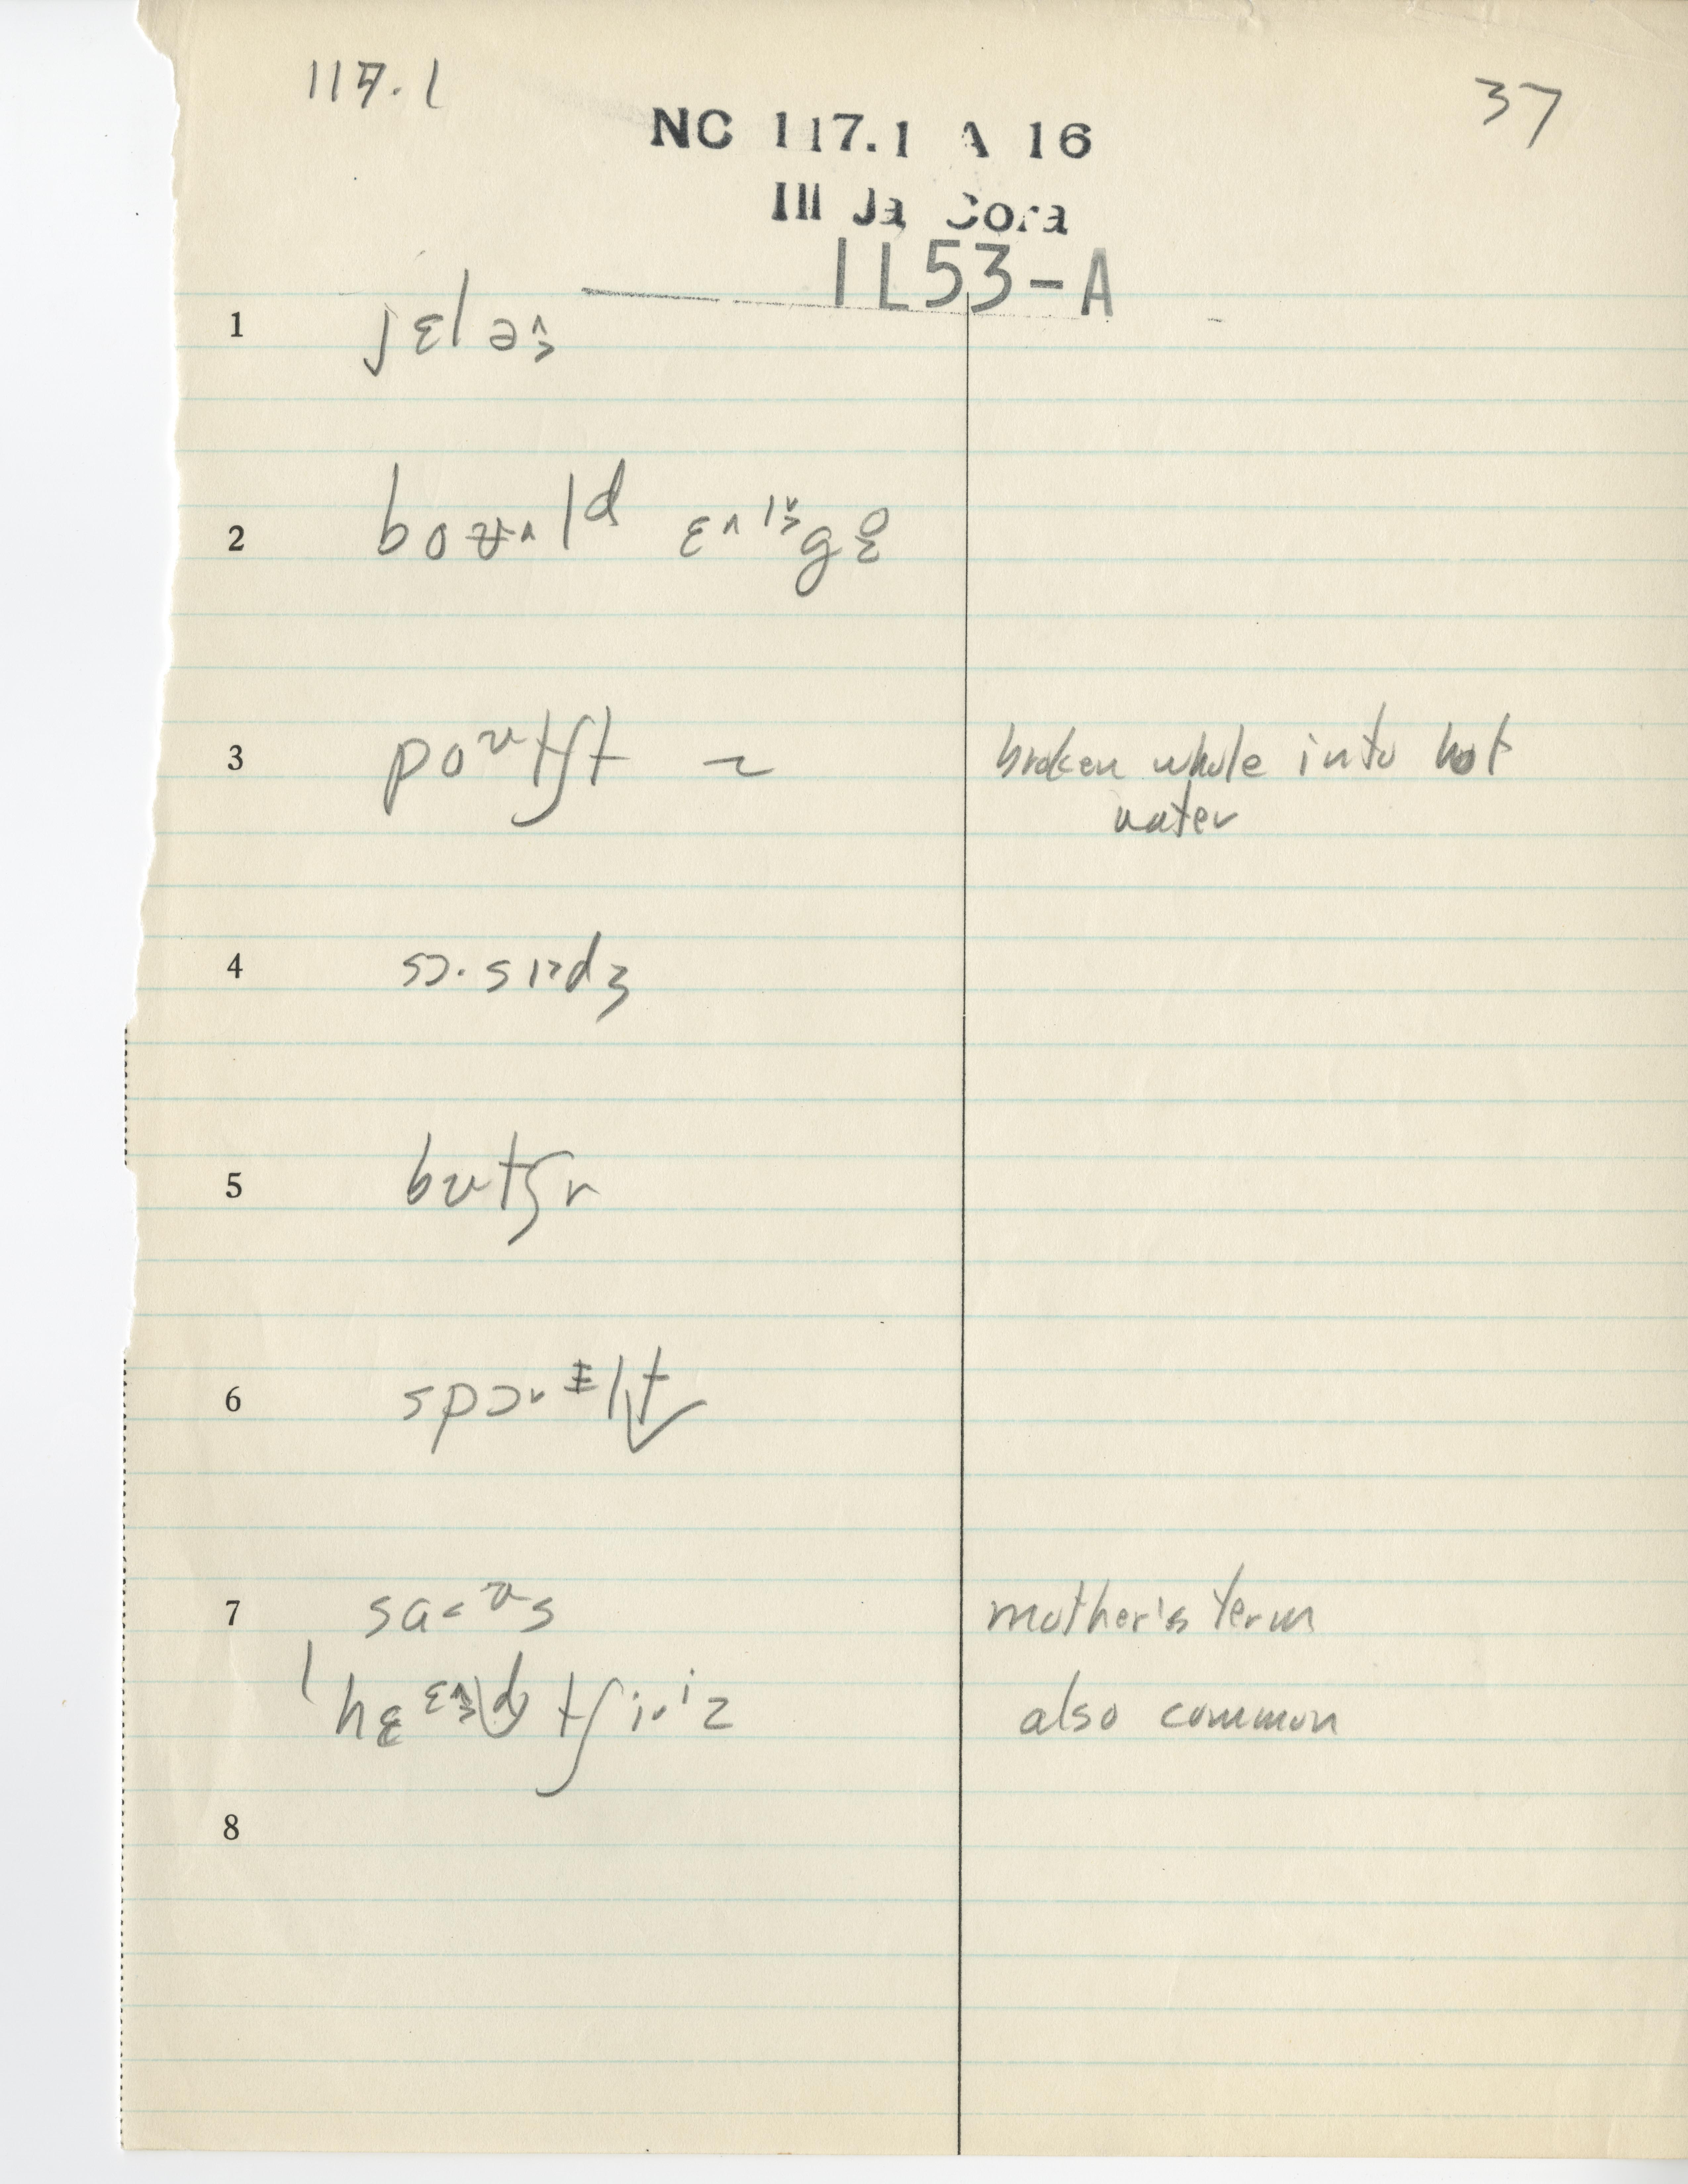 117.1
37
NC 117.1 A 16
III Ja Cora
1L53-A
1 jɛlə
2 boʊld
3 poʊtʃt ~ broken whole into hot
water
4 sɔ·sɪdʒ
5 bʊtʃr
6
7 saʊs mother's term
tʃiːz also common
8